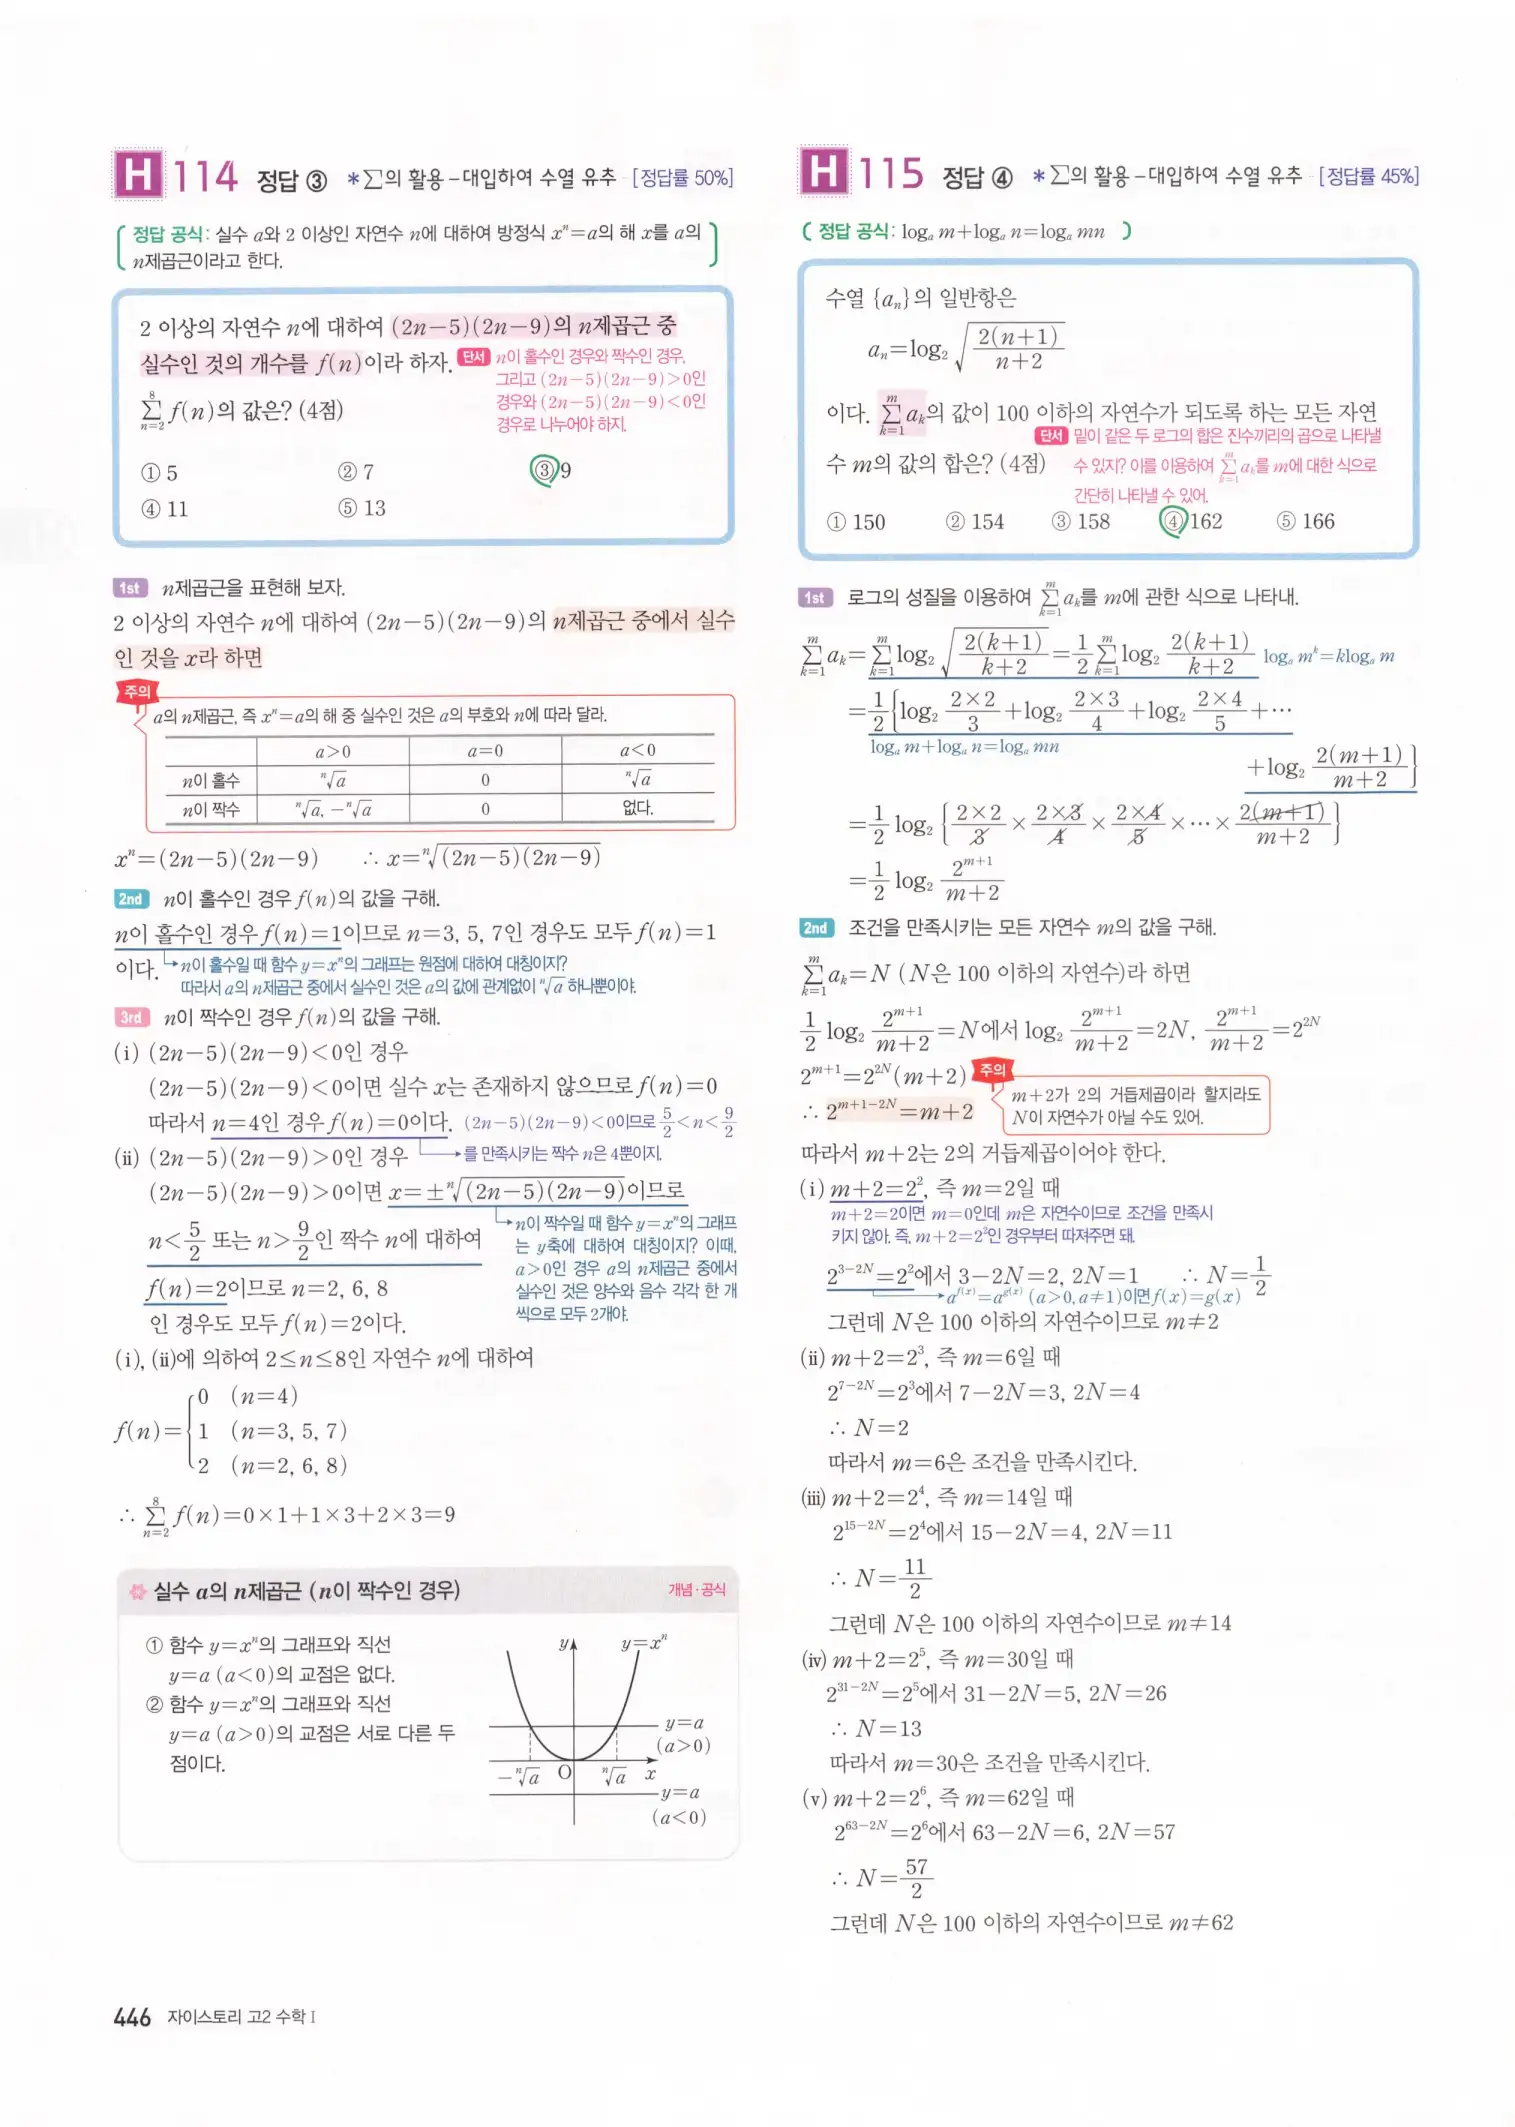 H 114 정답 ③ *∑의 활용-대입하여 수열 유추 [정답률 50%]
정답 공식: 실수 a와 2 이상인 자연수 n에 대하여 방정식 xⁿ=a의 해 x를 a의
n제곱근이라고 한다.
2 이상의 자연수 n에 대하여 (2n-5)(2n-9)의 n제곱근 중
실수인 것의 개수를 f(n)이라 하자. 단서 n이 홀수인 경우와 짝수인 경우,
그리고 (2n-5)(2n-9)>0인
경우와 (2n-5)(2n-9)<0인
경우로 나누어야 하지.
∑_{n=2}^{8} f(n)의 값은? (4점)
① 5 ② 7 ③ 9
④ 11 ⑤ 13
1st n제곱근을 표현해 보자.
2 이상의 자연수 n에 대하여 (2n-5)(2n-9)의 n제곱근 중에서 실수
인 것을 x라 하면
주의
a의 n제곱근, 즉 xⁿ=a의 해 중 실수인 것은 a의 부호와 n에 따라 달라.
a>0 a=0 a<0
n이 홀수 ⁿ√a 0 ⁿ√a
n이 짝수 ⁿ√a, -ⁿ√a 0 없다.
xⁿ=(2n-5)(2n-9) ∴ x=ⁿ√((2n-5)(2n-9))
2nd n이 홀수인 경우 f(n)의 값을 구해.
n이 홀수인 경우 f(n)=1이므로 n=3, 5, 7인 경우도 모두 f(n)=1
이다. n이 홀수일 때 함수 y=xⁿ의 그래프는 원점에 대하여 대칭이지?
따라서 a의 n제곱근 중에서 실수인 것은 a의 값에 관계없이 ⁿ√a 하나뿐이야.
3rd n이 짝수인 경우 f(n)의 값을 구해.
(i) (2n-5)(2n-9)<0인 경우
(2n-5)(2n-9)<0이면 실수 x는 존재하지 않으므로 f(n)=0
따라서 n=4인 경우 f(n)=0이다. (2n-5)(2n-9)<0이므로 5/2<n<9/2
(ii) (2n-5)(2n-9)>0인 경우 를 만족시키는 짝수 n은 4뿐이지.
(2n-5)(2n-9)>0이면 x=±ⁿ√((2n-5)(2n-9))이므로
n<5/2 또는 n>9/2인 짝수 n에 대하여
f(n)=2이므로 n=2, 6, 8
인 경우도 모두 f(n)=2이다.
n이 짝수일 때 함수 y=xⁿ의 그래프
는 y축에 대하여 대칭이지? 이때,
a>0인 경우 a의 n제곱근 중에서
실수인 것은 양수와 음수 각각 한 개
씩으로 모두 2개야.
(i), (ii)에 의하여 2≤n≤8인 자연수 n에 대하여
f(n)={0 (n=4)
1 (n=3, 5, 7)
2 (n=2, 6, 8)
∴ ∑_{n=2}^{8} f(n)=0×1+1×3+2×3=9
실수 a의 n제곱근 (n이 짝수인 경우) 개념·공식
① 함수 y=xⁿ의 그래프와 직선
y=a (a<0)의 교점은 없다.
② 함수 y=xⁿ의 그래프와 직선
y=a (a>0)의 교점은 서로 다른 두
점이다.
y y=xⁿ
y=a
(a>0)
-ⁿ√a O ⁿ√a x
y=a
(a<0)
446 자이스토리 고2 수학 I
H 115 정답 ④ *∑의 활용-대입하여 수열 유추 [정답률 45%]
정답 공식: logₐ m+logₐ n=logₐ mn
수열 {aₙ}의 일반항은
aₙ=log₂ √(2(n+1)/(n+2))
이다. ∑_{k=1}^{m} aₖ의 값이 100 이하의 자연수가 되도록 하는 모든 자연
단서 밑이 같은 두 로그의 합은 진수끼리의 곱으로 나타낼
수 m의 값의 합은? (4점) 수 있지? 이를 이용하여 ∑_{k=1}^{m} aₖ를 m에 대한 식으로
간단히 나타낼 수 있어.
① 150 ② 154 ③ 158 ④ 162 ⑤ 166
1st 로그의 성질을 이용하여 ∑_{k=1}^{m} aₖ를 m에 관한 식으로 나타내.
∑_{k=1}^{m} aₖ=∑_{k=1}^{m} log₂ √(2(k+1)/(k+2))=1/2 ∑_{k=1}^{m} log₂ 2(k+1)/(k+2) logₐ mᵏ=klogₐ m
=1/2{log₂ (2×2)/3+log₂ (2×3)/4+log₂ (2×4)/5+⋯
logₐ m+logₐ n=logₐ mn
+log₂ 2(m+1)/(m+2)}
=1/2 log₂ {(2×2)/3×(2×3)/4×(2×4)/5×⋯×2(m+1)/(m+2)}
=1/2 log₂ 2^{m+1}/(m+2)
2nd 조건을 만족시키는 모든 자연수 m의 값을 구해.
∑_{k=1}^{m} aₖ=N (N은 100 이하의 자연수)라 하면
1/2 log₂ 2^{m+1}/(m+2)=N에서 log₂ 2^{m+1}/(m+2)=2N, 2^{m+1}/(m+2)=2^{2N}
2^{m+1}=2^{2N}(m+2)
∴ 2^{m+1-2N}=m+2
주의
m+2가 2의 거듭제곱이라 할지라도
N이 자연수가 아닐 수도 있어.
따라서 m+2는 2의 거듭제곱이어야 한다.
(i) m+2=2², 즉 m=2일 때
m+2=2이면 m=0인데 m은 자연수이므로 조건을 만족시
키지 않아. 즉, m+2=2²인 경우부터 따져주면 돼.
2^{3-2N}=2²에서 3-2N=2, 2N=1 ∴ N=1/2
a^{f(x)}=a^{g(x)} (a>0, a≠1)이면 f(x)=g(x)
그런데 N은 100 이하의 자연수이므로 m≠2
(ii) m+2=2³, 즉 m=6일 때
2^{7-2N}=2³에서 7-2N=3, 2N=4
∴ N=2
따라서 m=6은 조건을 만족시킨다.
(iii) m+2=2⁴, 즉 m=14일 때
2^{15-2N}=2⁴에서 15-2N=4, 2N=11
∴ N=11/2
그런데 N은 100 이하의 자연수이므로 m≠14
(iv) m+2=2⁵, 즉 m=30일 때
2^{31-2N}=2⁵에서 31-2N=5, 2N=26
∴ N=13
따라서 m=30은 조건을 만족시킨다.
(v) m+2=2⁶, 즉 m=62일 때
2^{63-2N}=2⁶에서 63-2N=6, 2N=57
∴ N=57/2
그런데 N은 100 이하의 자연수이므로 m≠62